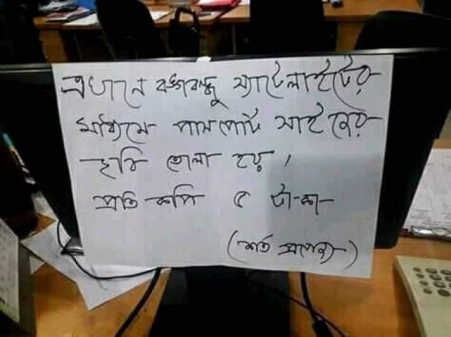 এখানে বঙ্গবন্ধু স্যাটেলাইটের
মাধ্যমে পাসপোর্ট সাইজের
ছবি তোলা হয়।
প্রতি কপি ৫ টাকা
(শর্ত প্রযোজ্য)